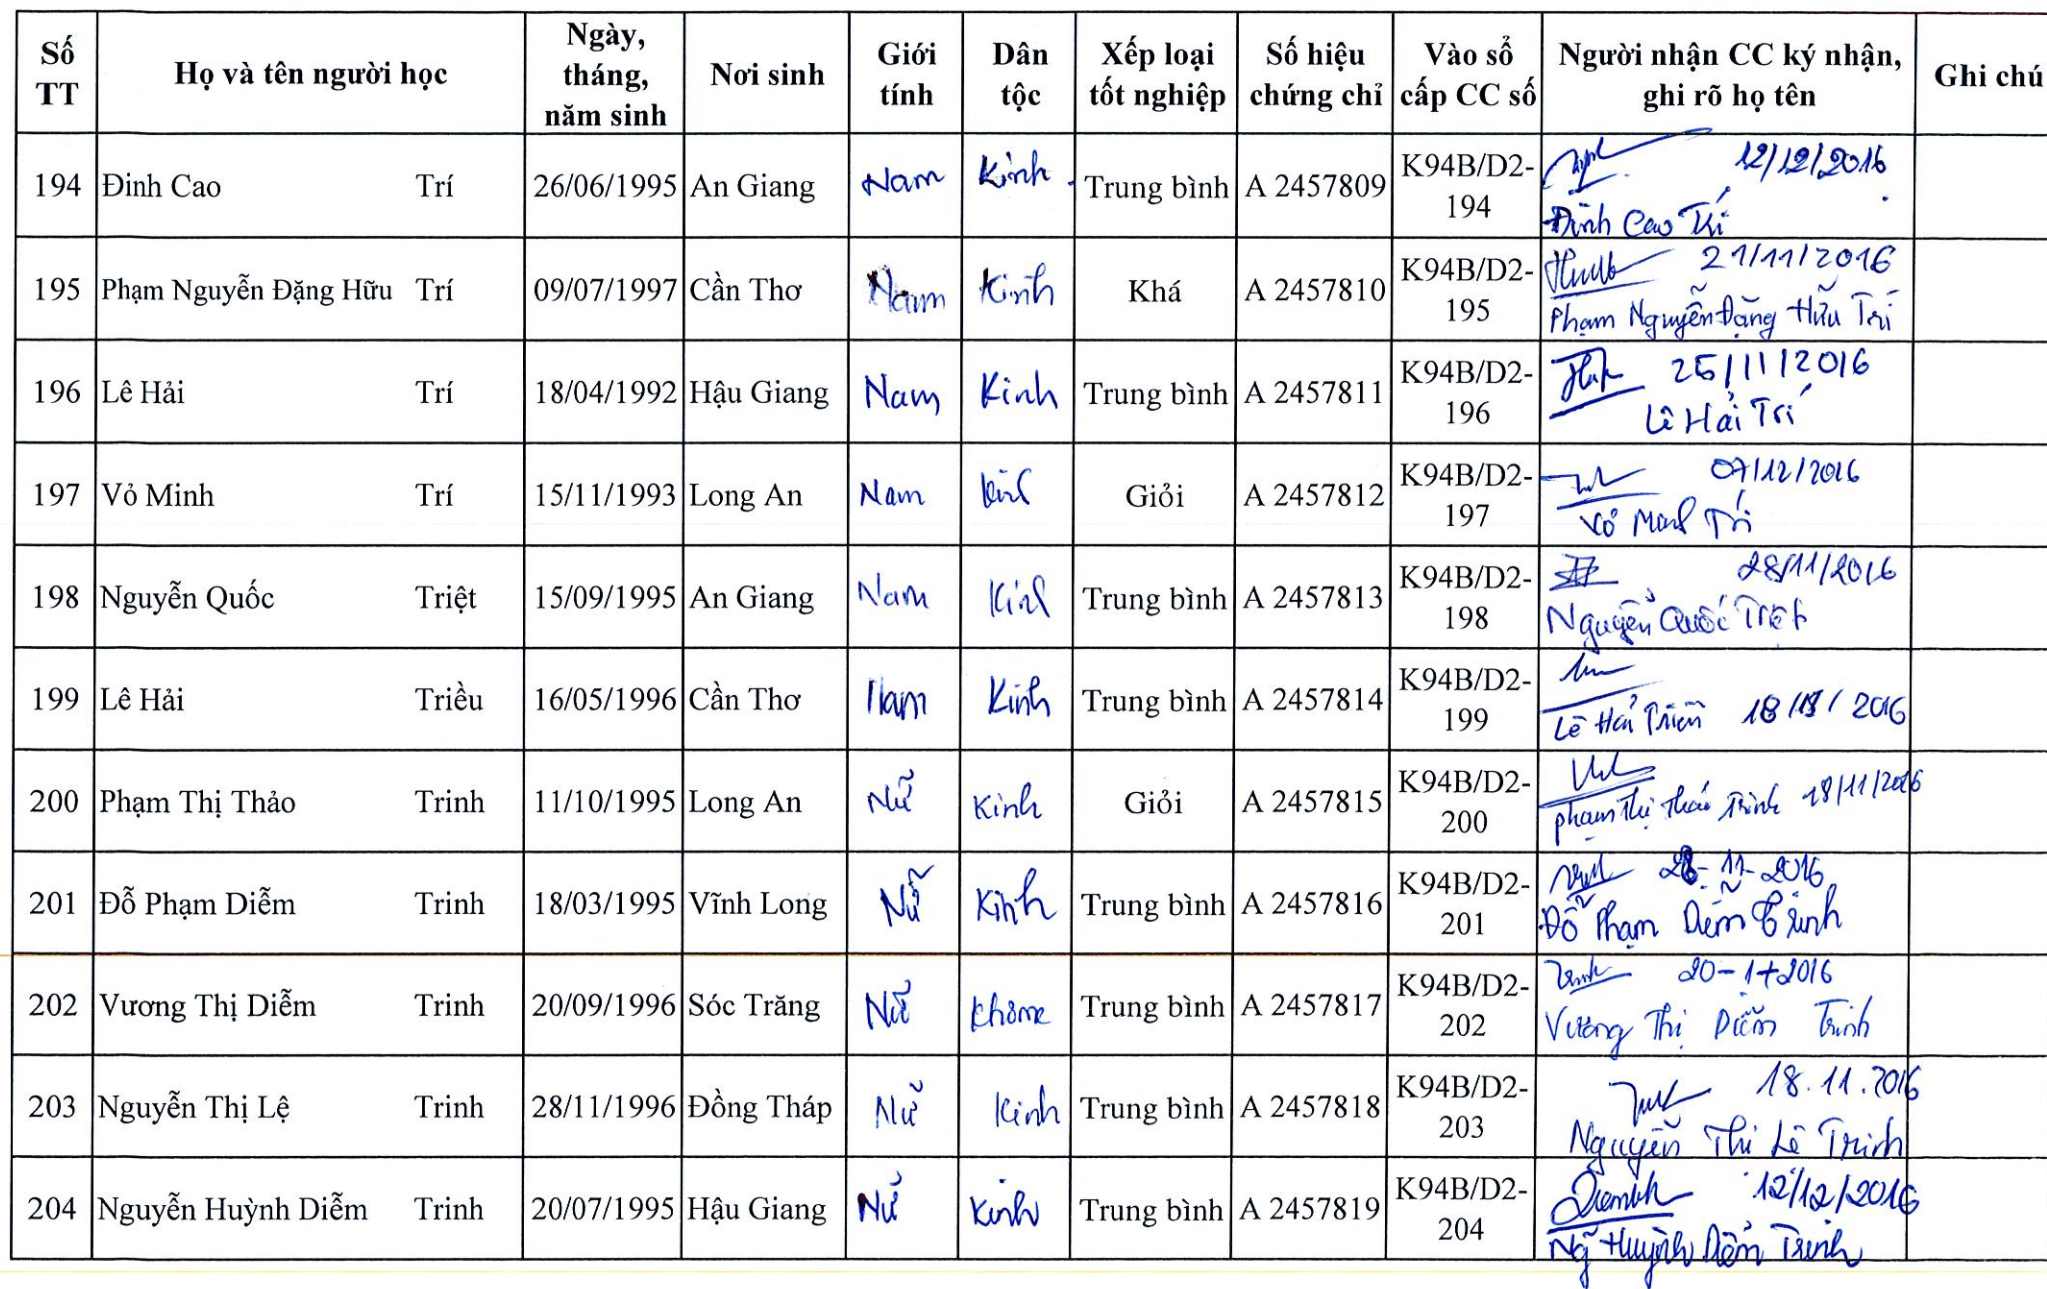 Số TT Họ và tên người học Ngày, tháng, năm sinh Nơi sinh Giới tính Dân tộc Xếp loại tốt nghiệp Số hiệu chứng chỉ Vào sổ cấp CC số Người nhận CC ký nhận, ghi rõ họ tên Ghi chú
194 Đinh Cao Trí 26/06/1995 An Giang Nam Kinh Trung bình A 2457809 K94B/D2-194 12/12/2016
Đinh Cao Trí
195 Phạm Nguyễn Đặng Hữu Trí 09/07/1997 Cần Thơ Nam Kinh Khá A 2457810 K94B/D2-195 21/11/2016
Phạm Nguyễn Đặng Hữu Trí
196 Lê Hải Trí 18/04/1992 Hậu Giang Nam Kinh Trung bình A 2457811 K94B/D2-196 25/11/2016
Lê Hải Trí
197 Vỏ Minh Trí 15/11/1993 Long An Nam Kinh Giỏi A 2457812 K94B/D2-197 07/12/2016
Vỏ Minh Trí
198 Nguyễn Quốc Triệt 15/09/1995 An Giang Nam Kinh Trung bình A 2457813 K94B/D2-198 28/11/2016
Nguyễn Quốc Triệt
199 Lê Hải Triều 16/05/1996 Cần Thơ Nam Kinh Trung bình A 2457814 K94B/D2-199
Lê Hải Triều 2016
200 Phạm Thị Thảo Trinh 11/10/1995 Long An Nữ Kinh Giỏi A 2457815 K94B/D2-200
Phạm Thị Thảo Trinh 18/11/2016
201 Đỗ Phạm Diễm Trinh 18/03/1995 Vĩnh Long Nữ Kinh Trung bình A 2457816 K94B/D2-201 28-11-2016
Đỗ Phạm Diễm Trinh
202 Vương Thị Diễm Trinh 20/09/1996 Sóc Trăng Nữ Khơme Trung bình A 2457817 K94B/D2-202
Vương Thị Diễm Trinh
203 Nguyễn Thị Lệ Trinh 28/11/1996 Đồng Tháp Nữ Kinh Trung bình A 2457818 K94B/D2-203 18.11.2016
Nguyễn Thị Lệ Trinh
204 Nguyễn Huỳnh Diễm Trinh 20/07/1995 Hậu Giang Nữ Kinh Trung bình A 2457819 K94B/D2-204 12/12/2016
Ng Huỳnh Diễm Trinh